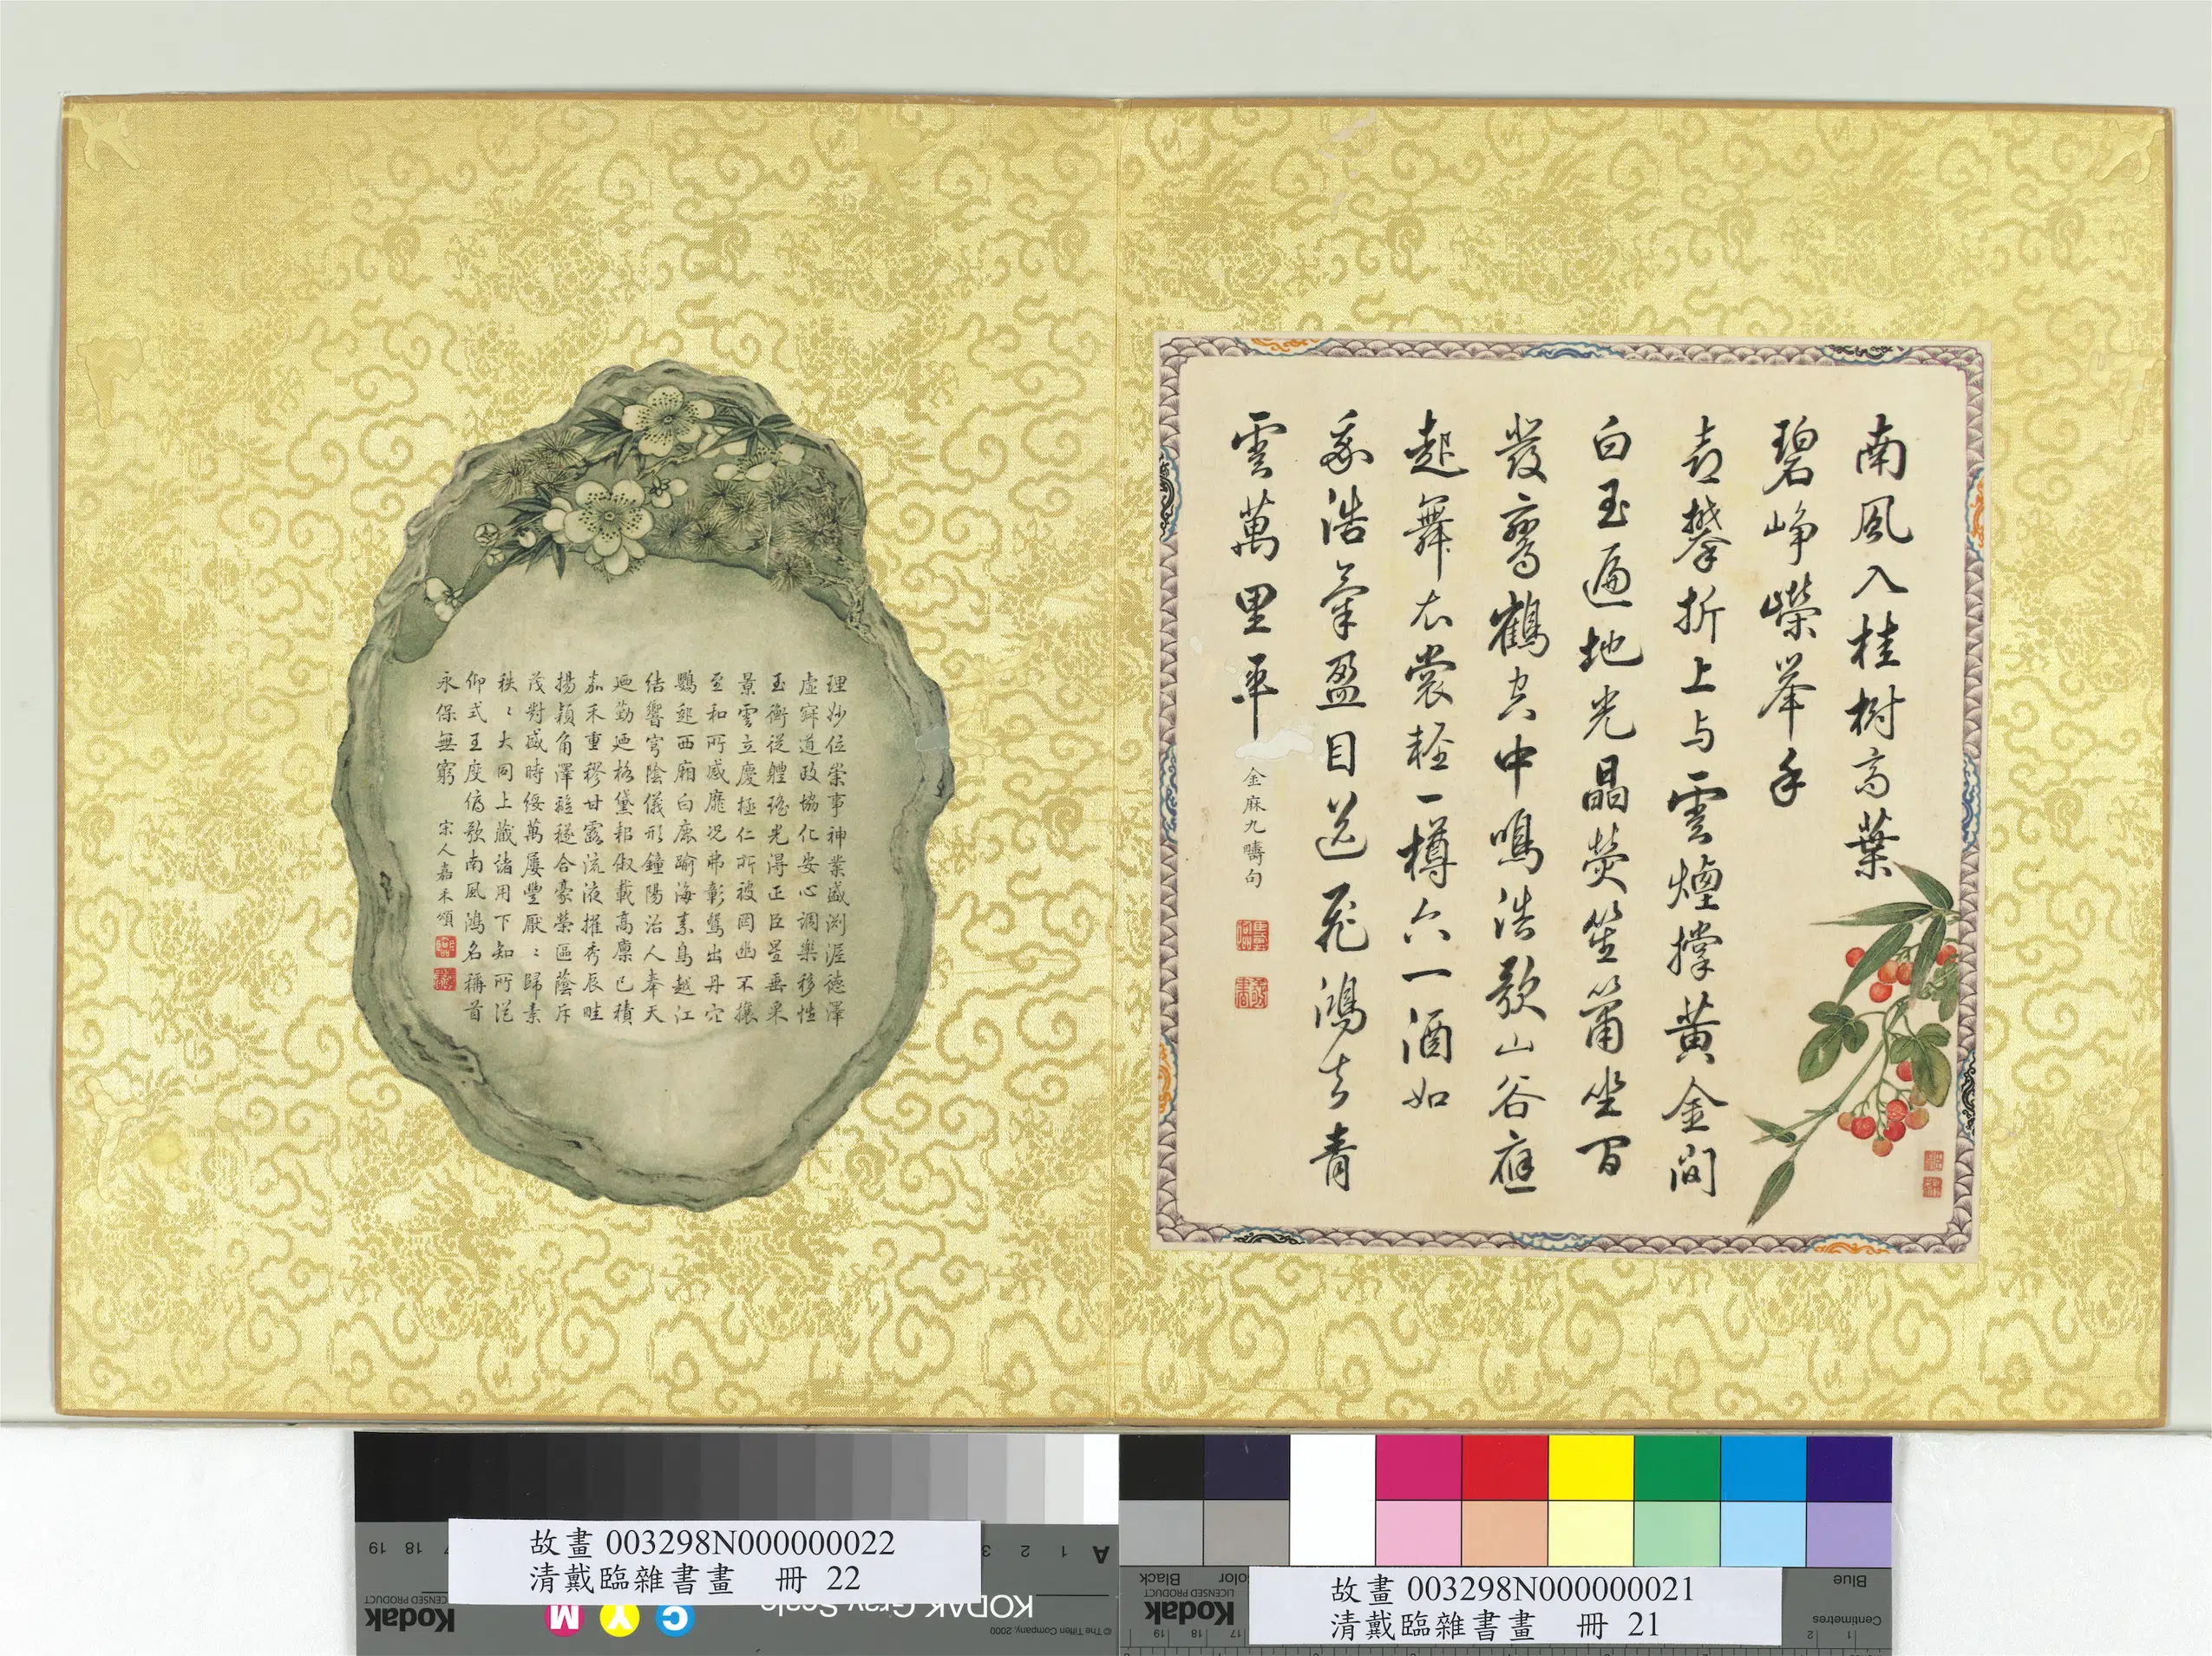 南風入桂樹高葉
碧崢嶸舉手
喜攀折上与雲煙撐黃金間
白玉遍地光晶熒笙簫坐間
發鸞鶴空中鳴浩歌山谷應
起舞衣裳輕一樽六一酒如
我浩氣盈目送飛鴻去青
雲萬里平
金麻九疇句
理妙位崇事神業盛渊渥德澤
虛寂道政協化安心調樂移性
玉衡從體瑤光得正臣星垂采
景雲立慶極仁所被罔幽不攘
至和所感靡况弗彰鸑出丹穴
鸚起西廂白鹿踰海素鳥越江
结響穹陰儀形鐘陽治人奉天
迺勤迺格黛耜俶載高廪已積
嘉禾重穋甘露流液擢秀辰畦
揚穎角澤離穟合豪榮區蔭斥
茂對盛時綏萬屢豐厭〻歸素
秩〻大同上藏諸用下知所從
仰式王度俯歌南風鴻名稱首
永保無窮 宋人嘉禾頌
故畫 003298N000000022
清戴臨雜書畫 冊 22
故畫 003298N000000021
清戴臨雜書畫 冊 21
KODAK Gray Scale
Kodak
LICENSED PRODUCT
© The Tiffen Company, 2000
C Y M
Kodak
LICENSED PRODUCT
Black
Blue
Centimetres